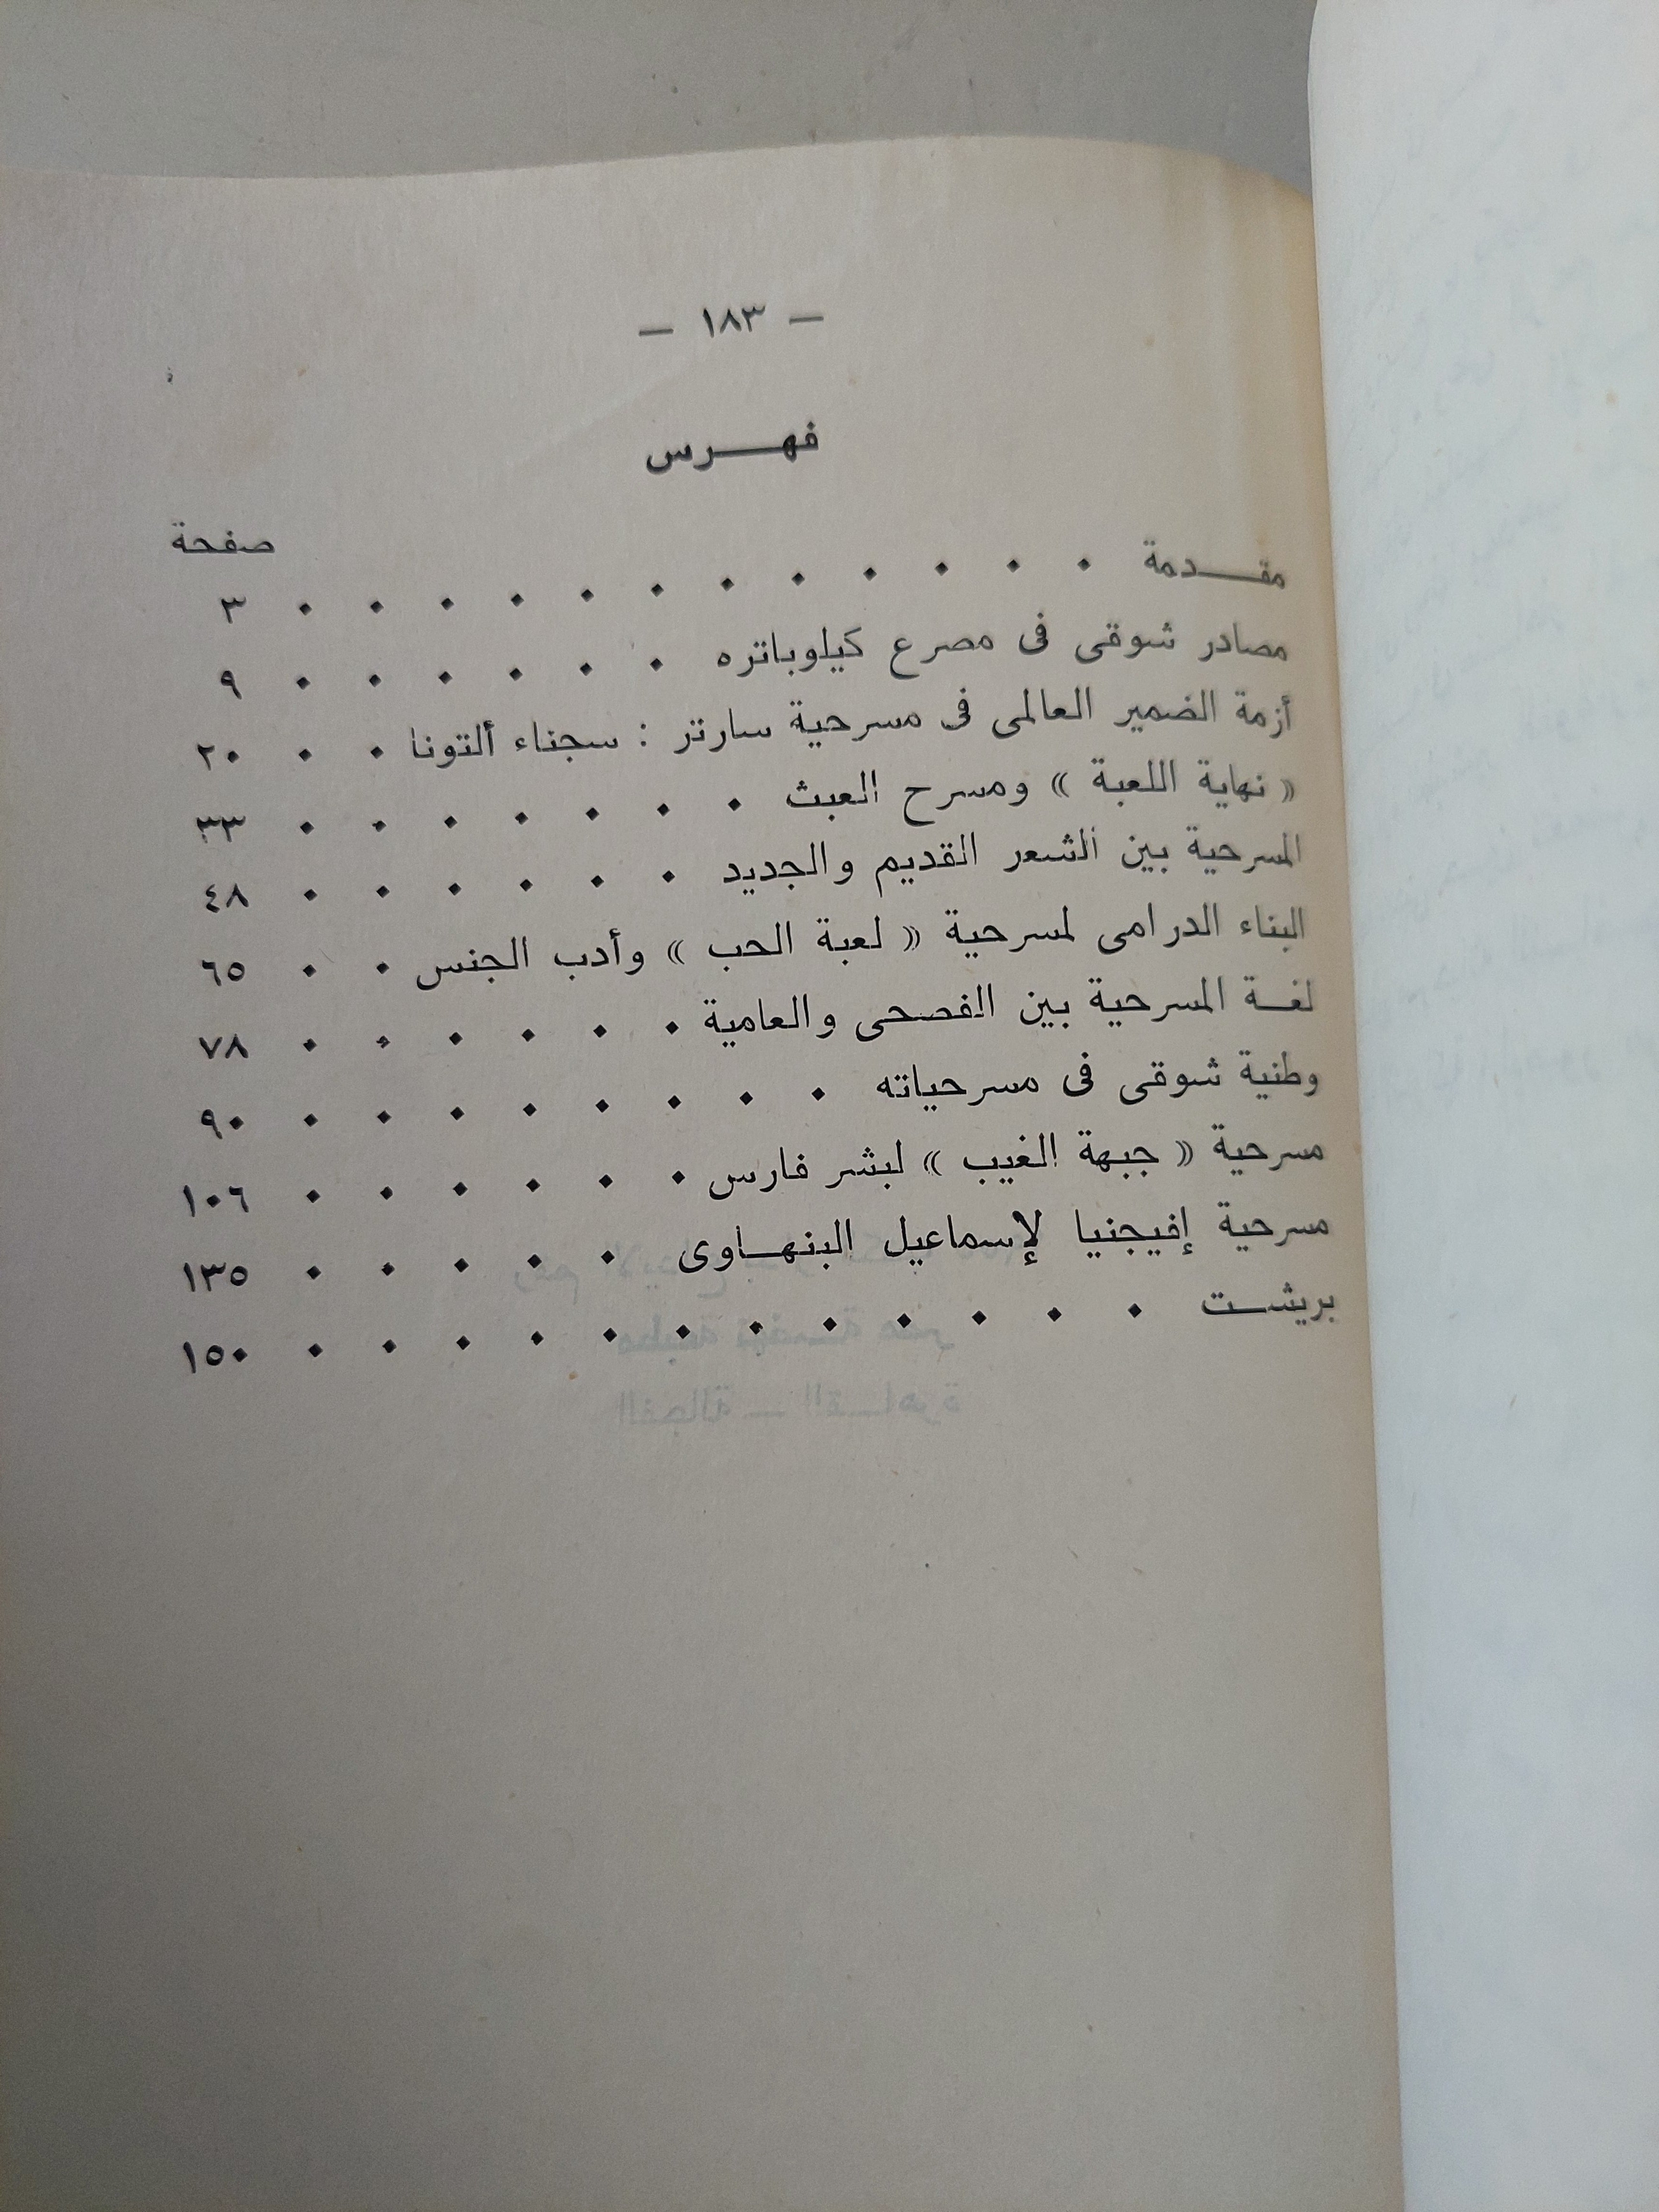 — ١٨٣ —
فهـــرس
صفحة
مقـــدمة . . . . . . . . . . . . ٣
مصادر شوقى فى مصرع كيلوباتره . . . . . . ٩
أزمة الضمير العالمى فى مسرحية سارتر : سجناء ألتونا . . ٢٠
« نهاية اللعبة » ومسرح العبث . . . . . . . ٣٣
المسرحية بين الشعر القديم والجديد . . . . . . ٤٨
البناء الدرامى لمسرحية « لعبة الحب » وأدب الجنس . . ٦٥
لغـة المسرحية بين الفصحى والعامية . . . . . . ٧٨
وطنية شوقى فى مسرحياته . . . . . . . . ٩٠
مسرحية « جبهة الغيب » لبشر فارس . . . . . . ١٠٦
مسرحية إفيجنيا لإسماعيل البنهـاوى . . . . . ١٣٥
بريشـت . . . . . . . . . . . . ١٥٠